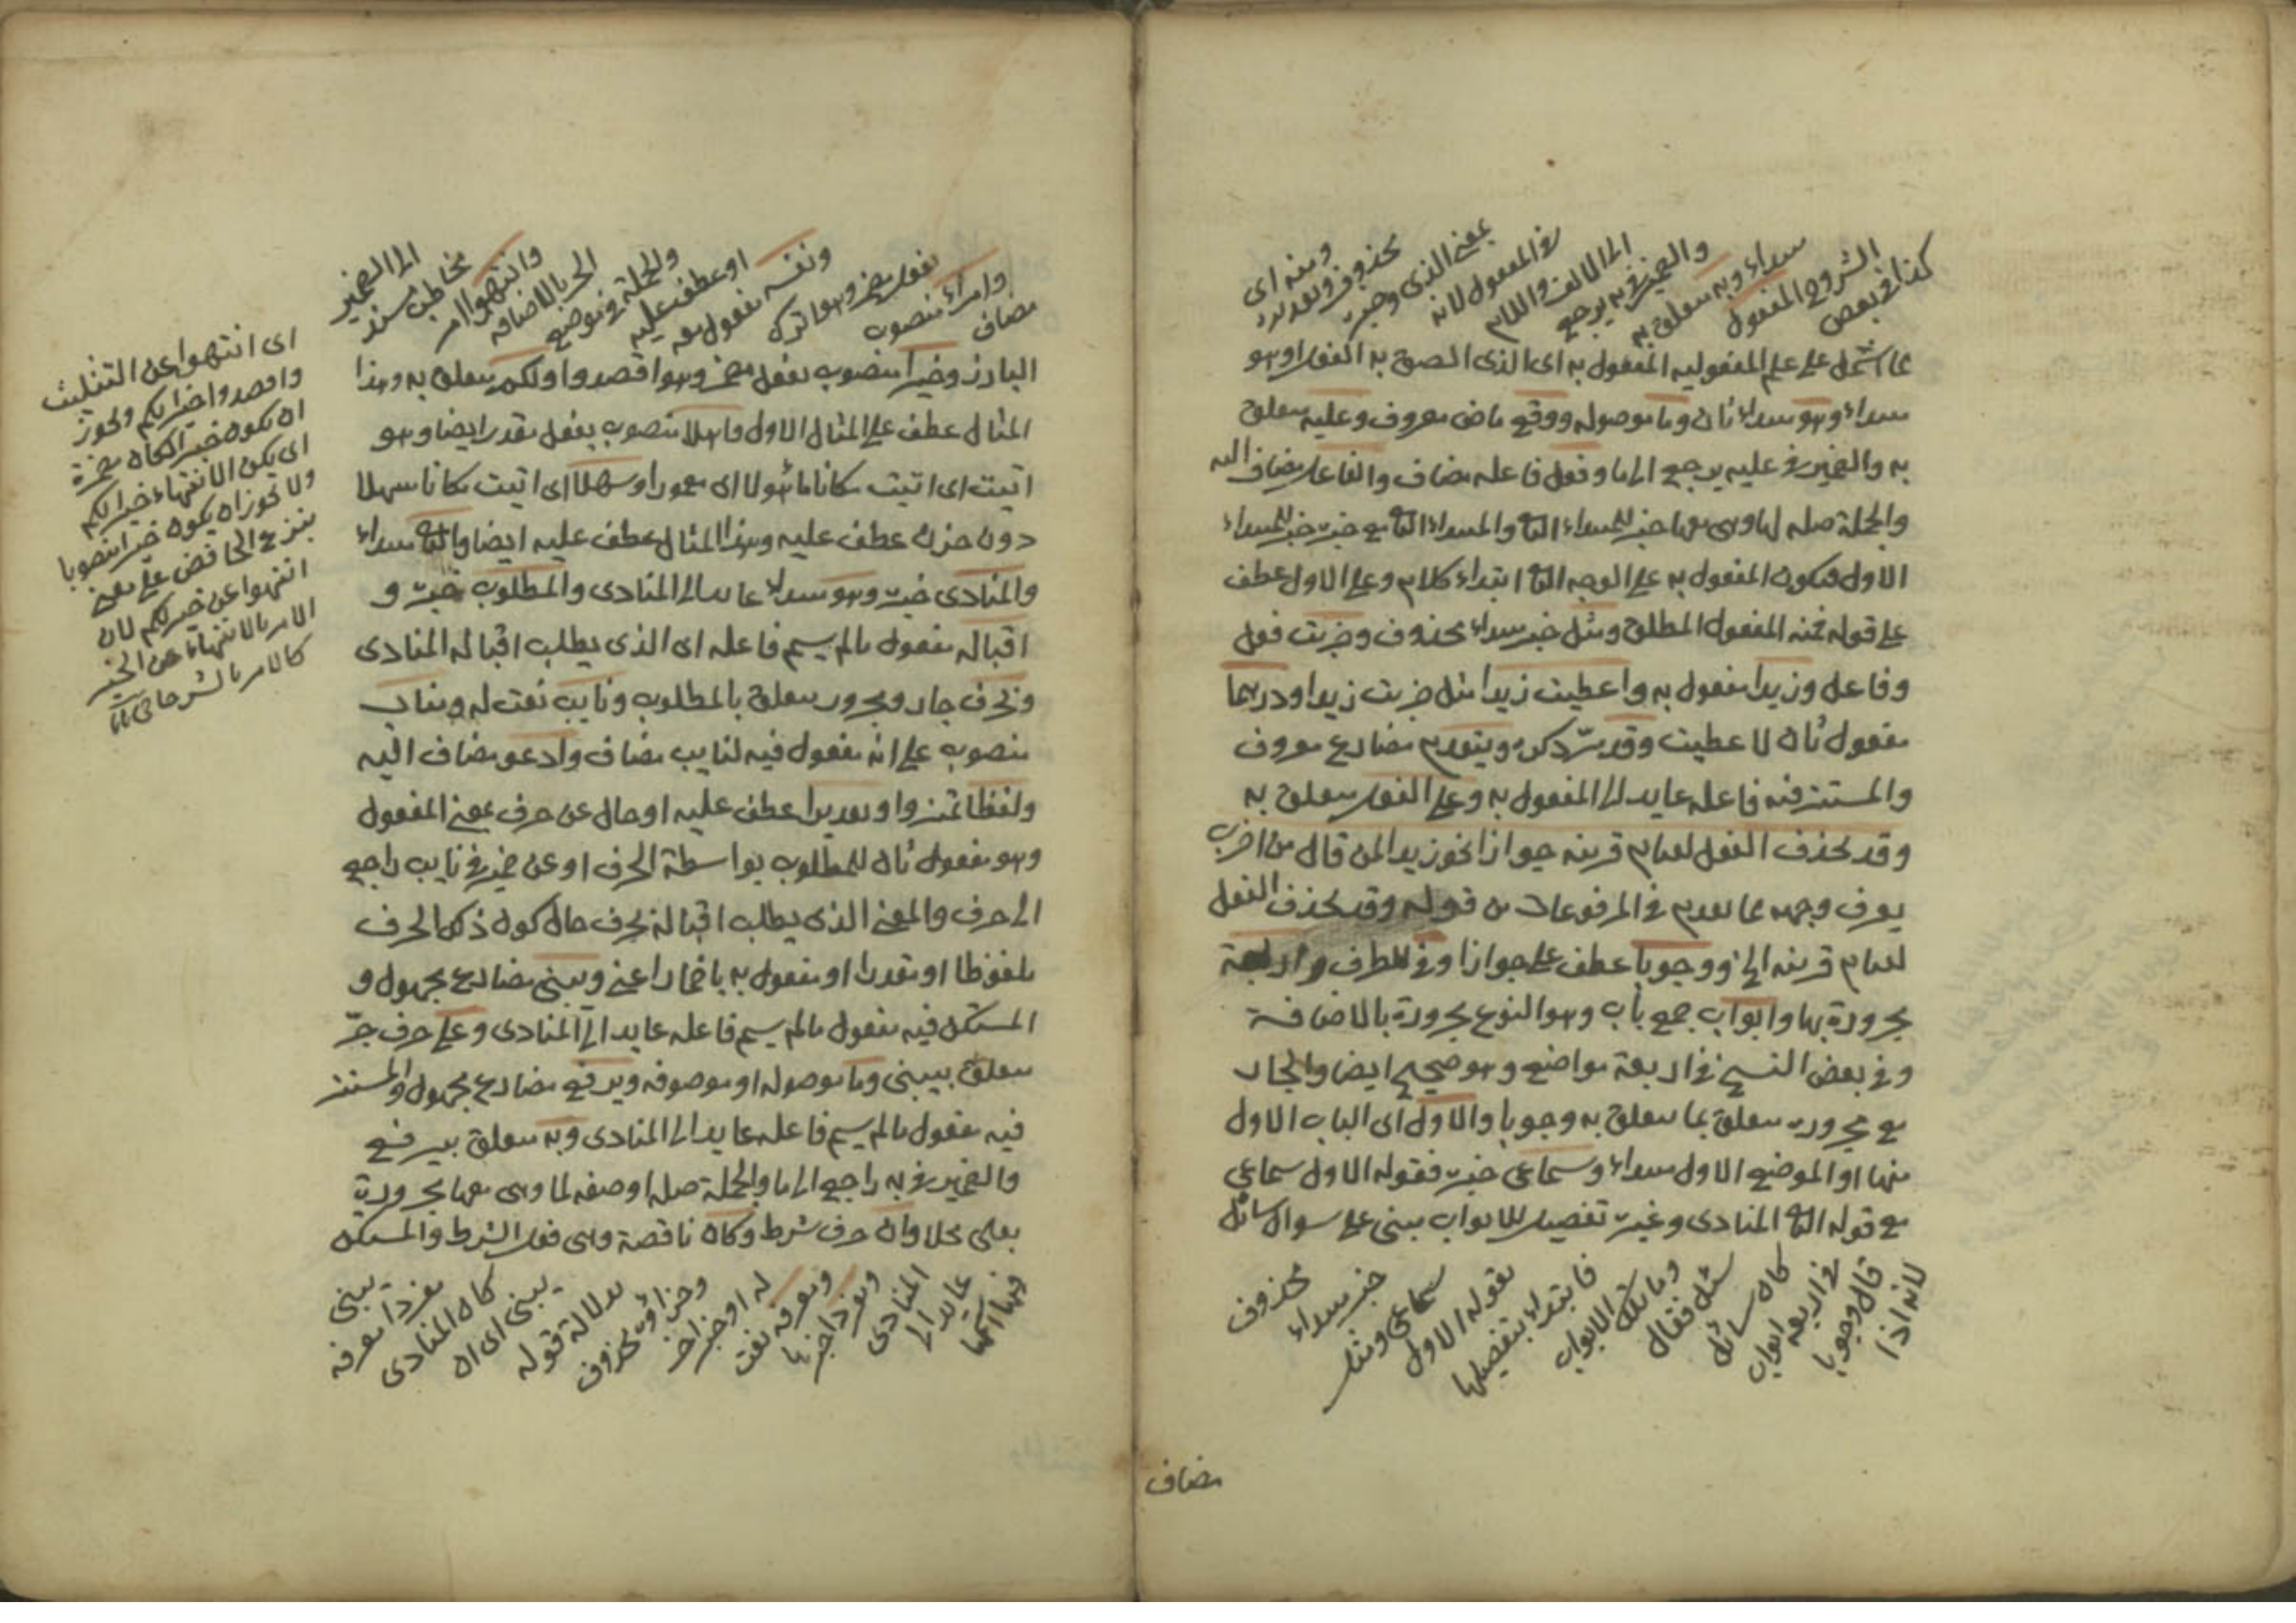 كذا فى بعض
الشروح المفعول
مبتداء وبه متعلق به
والضمير فى به يرجع
الى الالف واللام
فى المفعول لانه
بمعنى الذى وخبره
محذوف وتقديره
ومنه اى
مما اشتمل على علم المفعوليه المفعول به اى الذى الصق به الفعل او هو
مبتداء وهو مبتداء ثان وما موصوله ووقع ماض معروف وعليه متعلق
به والضمير فى عليه يرجع الى ما وفعل فاعله مضاف والفاعل مضاف اليه
والجملة صله لما وهى معها خبر للمبتداء الثانى والمبتداء الثانى مع خبره خبر للمبتداء
الاول فيكون المفعول به على الوجه الثانى ابتداء كلام وعلى الاول عطف
على قوله فمنه المفعول المطلق ومثل خبر مبتداء محذوف وضربت فعل
وفاعل وزيدا مفعول به واعطيت زيدا مثل ضربت زيدا ودرهما
مفعول ثان لاعطيت وقد مرّ ذكره ويتقدم مضارع معروف
والمستتر فيه فاعله عايد الى المفعول به وعلى الفعل متعلق به
وقد يحذف الفعل لقيام قرينه جوازا نحو زيدا لمن قال من اضرب
يعرف وجهه مما تقدم فى المرفوعات من قوله وقد يحذف الفعل
لقيام قرينه الخ ووجوبا عطف على جوازا وفى للظرف واربعة
مجرورة بها وابواب جمع باب وهو النوع مجرورة بالاضافة
وفى بعض النسخ فى اربعة مواضع وهو صحيح ايضا والجار
مع مجروره متعلق بما متعلق به وجوبا والاول اى الباب الاول
منها او الموضع الاول مبتداء وسماعى خبره فقوله الاول سماعى
مع قوله الثانى المنادى وغيره تفصيل للابواب مبنى على سوال سائل
لانه اذا
قال وجوبا
فى اربعة ابواب
كان سائل
سئل فقال
وما تلك الابواب
فابتداء بتفصيلها
بقوله الاول
سماعى ومثل
خبر مبتداء
محذوف
مضاف
مضاف
وامراء منصوب
بفعل مضمر وهو اترك
ونفسه مفعول معه
او عطف عليه
والجملة فى موضع
الجر بالاضافه
وانتهوا امر
مخاطب مسند
الى الضمير
البارز وخيرا منصوب بفعل مضمر وهو اقصدوا ولكم متعلق به وهذا
المثال عطف على المثال الاول واهلا منصوب بفعل مقدر ايضا وهو
اتيت اى اتيت مكانا ماهولا اى معمورا وسهلا اى اتيت مكانا سهلا
دون حزن عطف عليه وهذا المثال عطف عليه ايضا والثانى مبتداء
والمنادى خبره وهو مبتداء عايد الى المنادى والمطلوب خبره و
اقباله مفعول مالم يسم فاعله اى الذى يطلب اقباله المنادى
وبحرف جار ومجرور متعلق بالمطلوب ونايب نعت له ومناب
منصوب على انه مفعول فيه لنايب مضاف وادعو مضاف اليه
ولفظا تميز او تقديرا عطف عليه او حال عن حرف بمعنى المفعول
وهو مفعول ثان للمطلوب بواسطة الحرف او عن ضمير فى نايب راجع
الى حرف والمعنى الذى يطلب اقباله بحرف حال كون ذلك الحرف
ملفوظا او مقدرا او مفعول به باضمار اعنى ويبنى مضارع مجهول و
المستكن فيه مفعول مالم يسم فاعله عايد الى المنادى وعلى حرف جرّ
متعلق بيبنى وما موصوله او موصوفه ويرفع مضارع مجهول والمستتر
فيه مفعول مالم يسم فاعله عايد الى المنادى وبه متعلق بيرفع
والضمير فى به راجع الى ما والجملة صله او صفه لما وهى معها مجرورة
بعلى محلا وان حرف شرط وكان ناقصة وهى فعل الشرط والمستكن
فيها اسمها
عايد الى
المنادى
ومفردا خبرها
ومعرفه نعت
له او خبر اخر
وجزاؤه محذوف
بدلالة قوله
يبنى اى ان
كان المنادى
مفردا معرفه
يبنى
اى انتهوا عن التثليث
واقصدوا خيرا لكم ويجوز
ان يكون خيرا لكان مضمرة
اى يكن الانتهاء خيرا لكم
ولا يجوز ان يكون خيرا منصوبا
بنزع الخافض على معنى
انتهوا عن خير لكم لان
الامر بالانتهاء عن الخير
كالامر بالشر